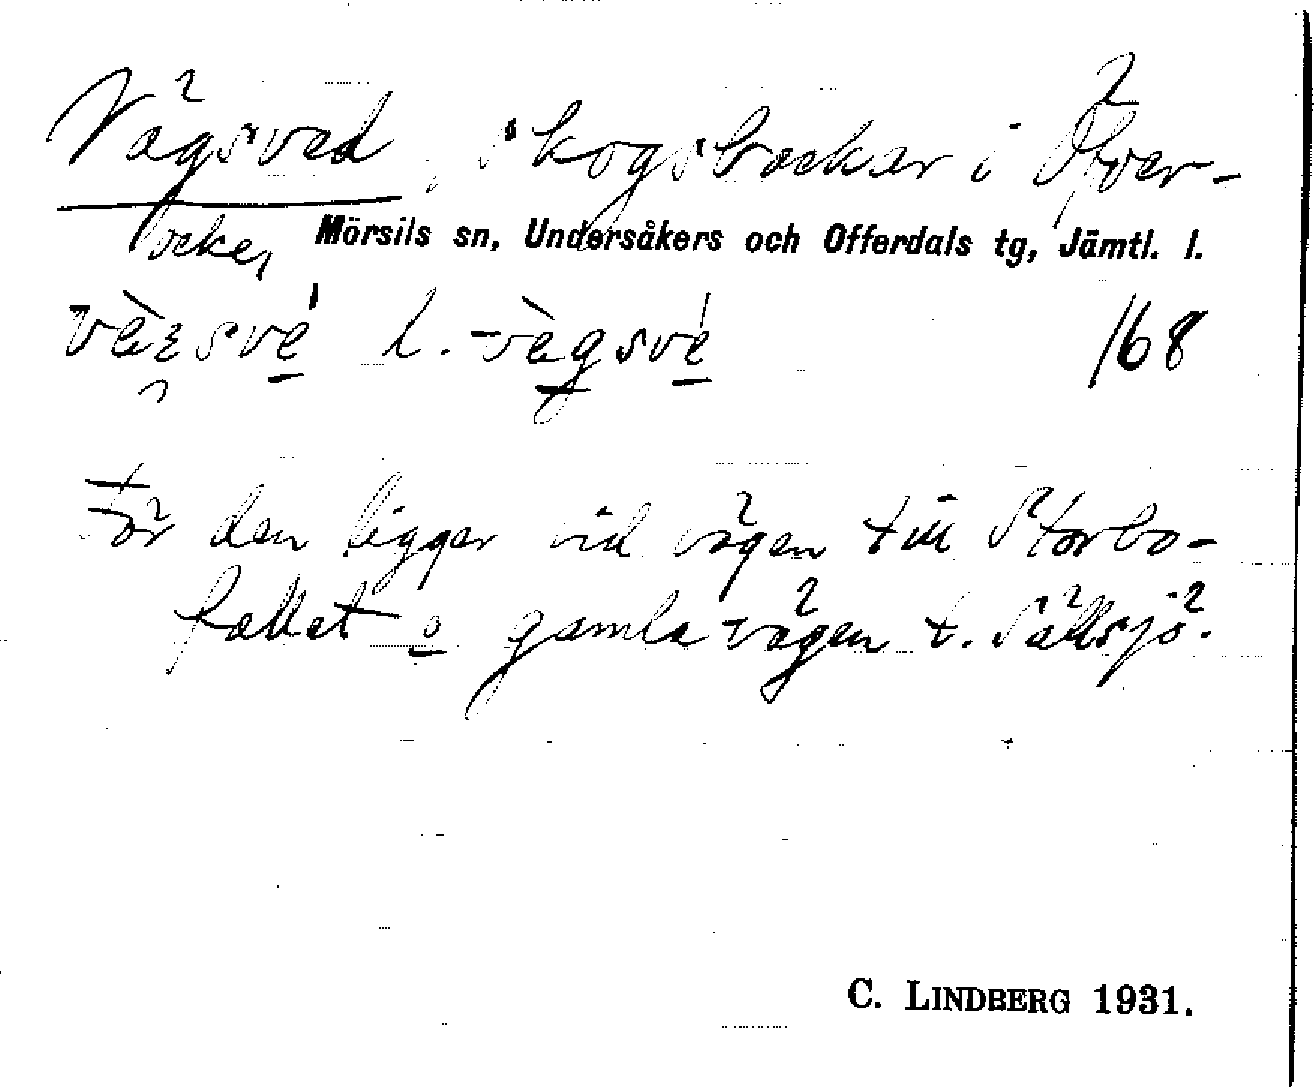 Vägsved, skogsbackar i Över-
Mörsils sn, Undersåkers och Offerdals tg, Jämtl. l.
168
För den ligger vid vägen till Storbo-
fallet o gamla vägen t. Sällsjö.
C. LINDBERG 1931.